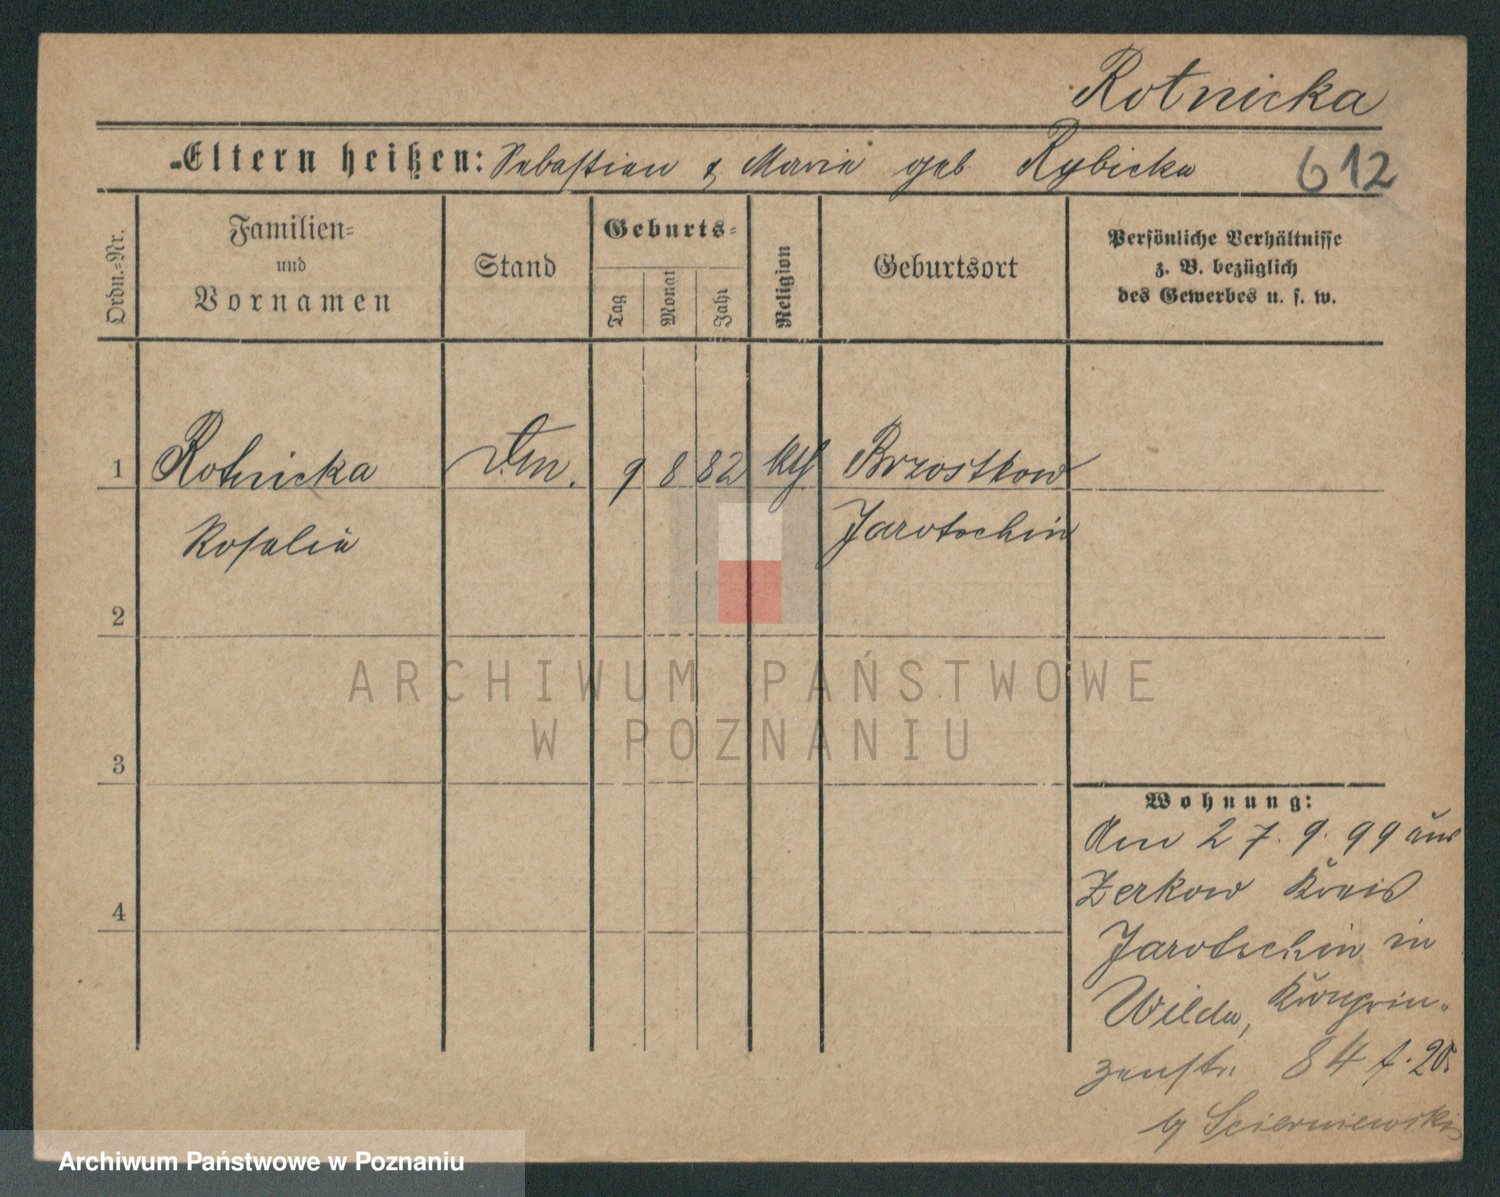 Rotnicka
Eltern heißen: Sebastian & Maria geb Rybicka 612
Ordn.=Nr.
Familien=
und
Vornamen
Stand
Geburts=
Tag
Monat
Jahr
Religion
Geburtsort
Persönliche Verhältnisse
z. B. bezüglich
des Gewerbes u. s. w.
1 Rotnicka 9 8 82 kth Brzostkow
Rosalia Jarotschin
2
3
4
Wohnung:
Am 27. 9. 99 aus
Zerkow Kreis
Jarotschin in
Wilda, Kronprin-
zenstr. 84
Scierniewski
ARCHIWUM PAŃSTWOWE
W POZNANIU
Archiwum Państwowe w Poznaniu